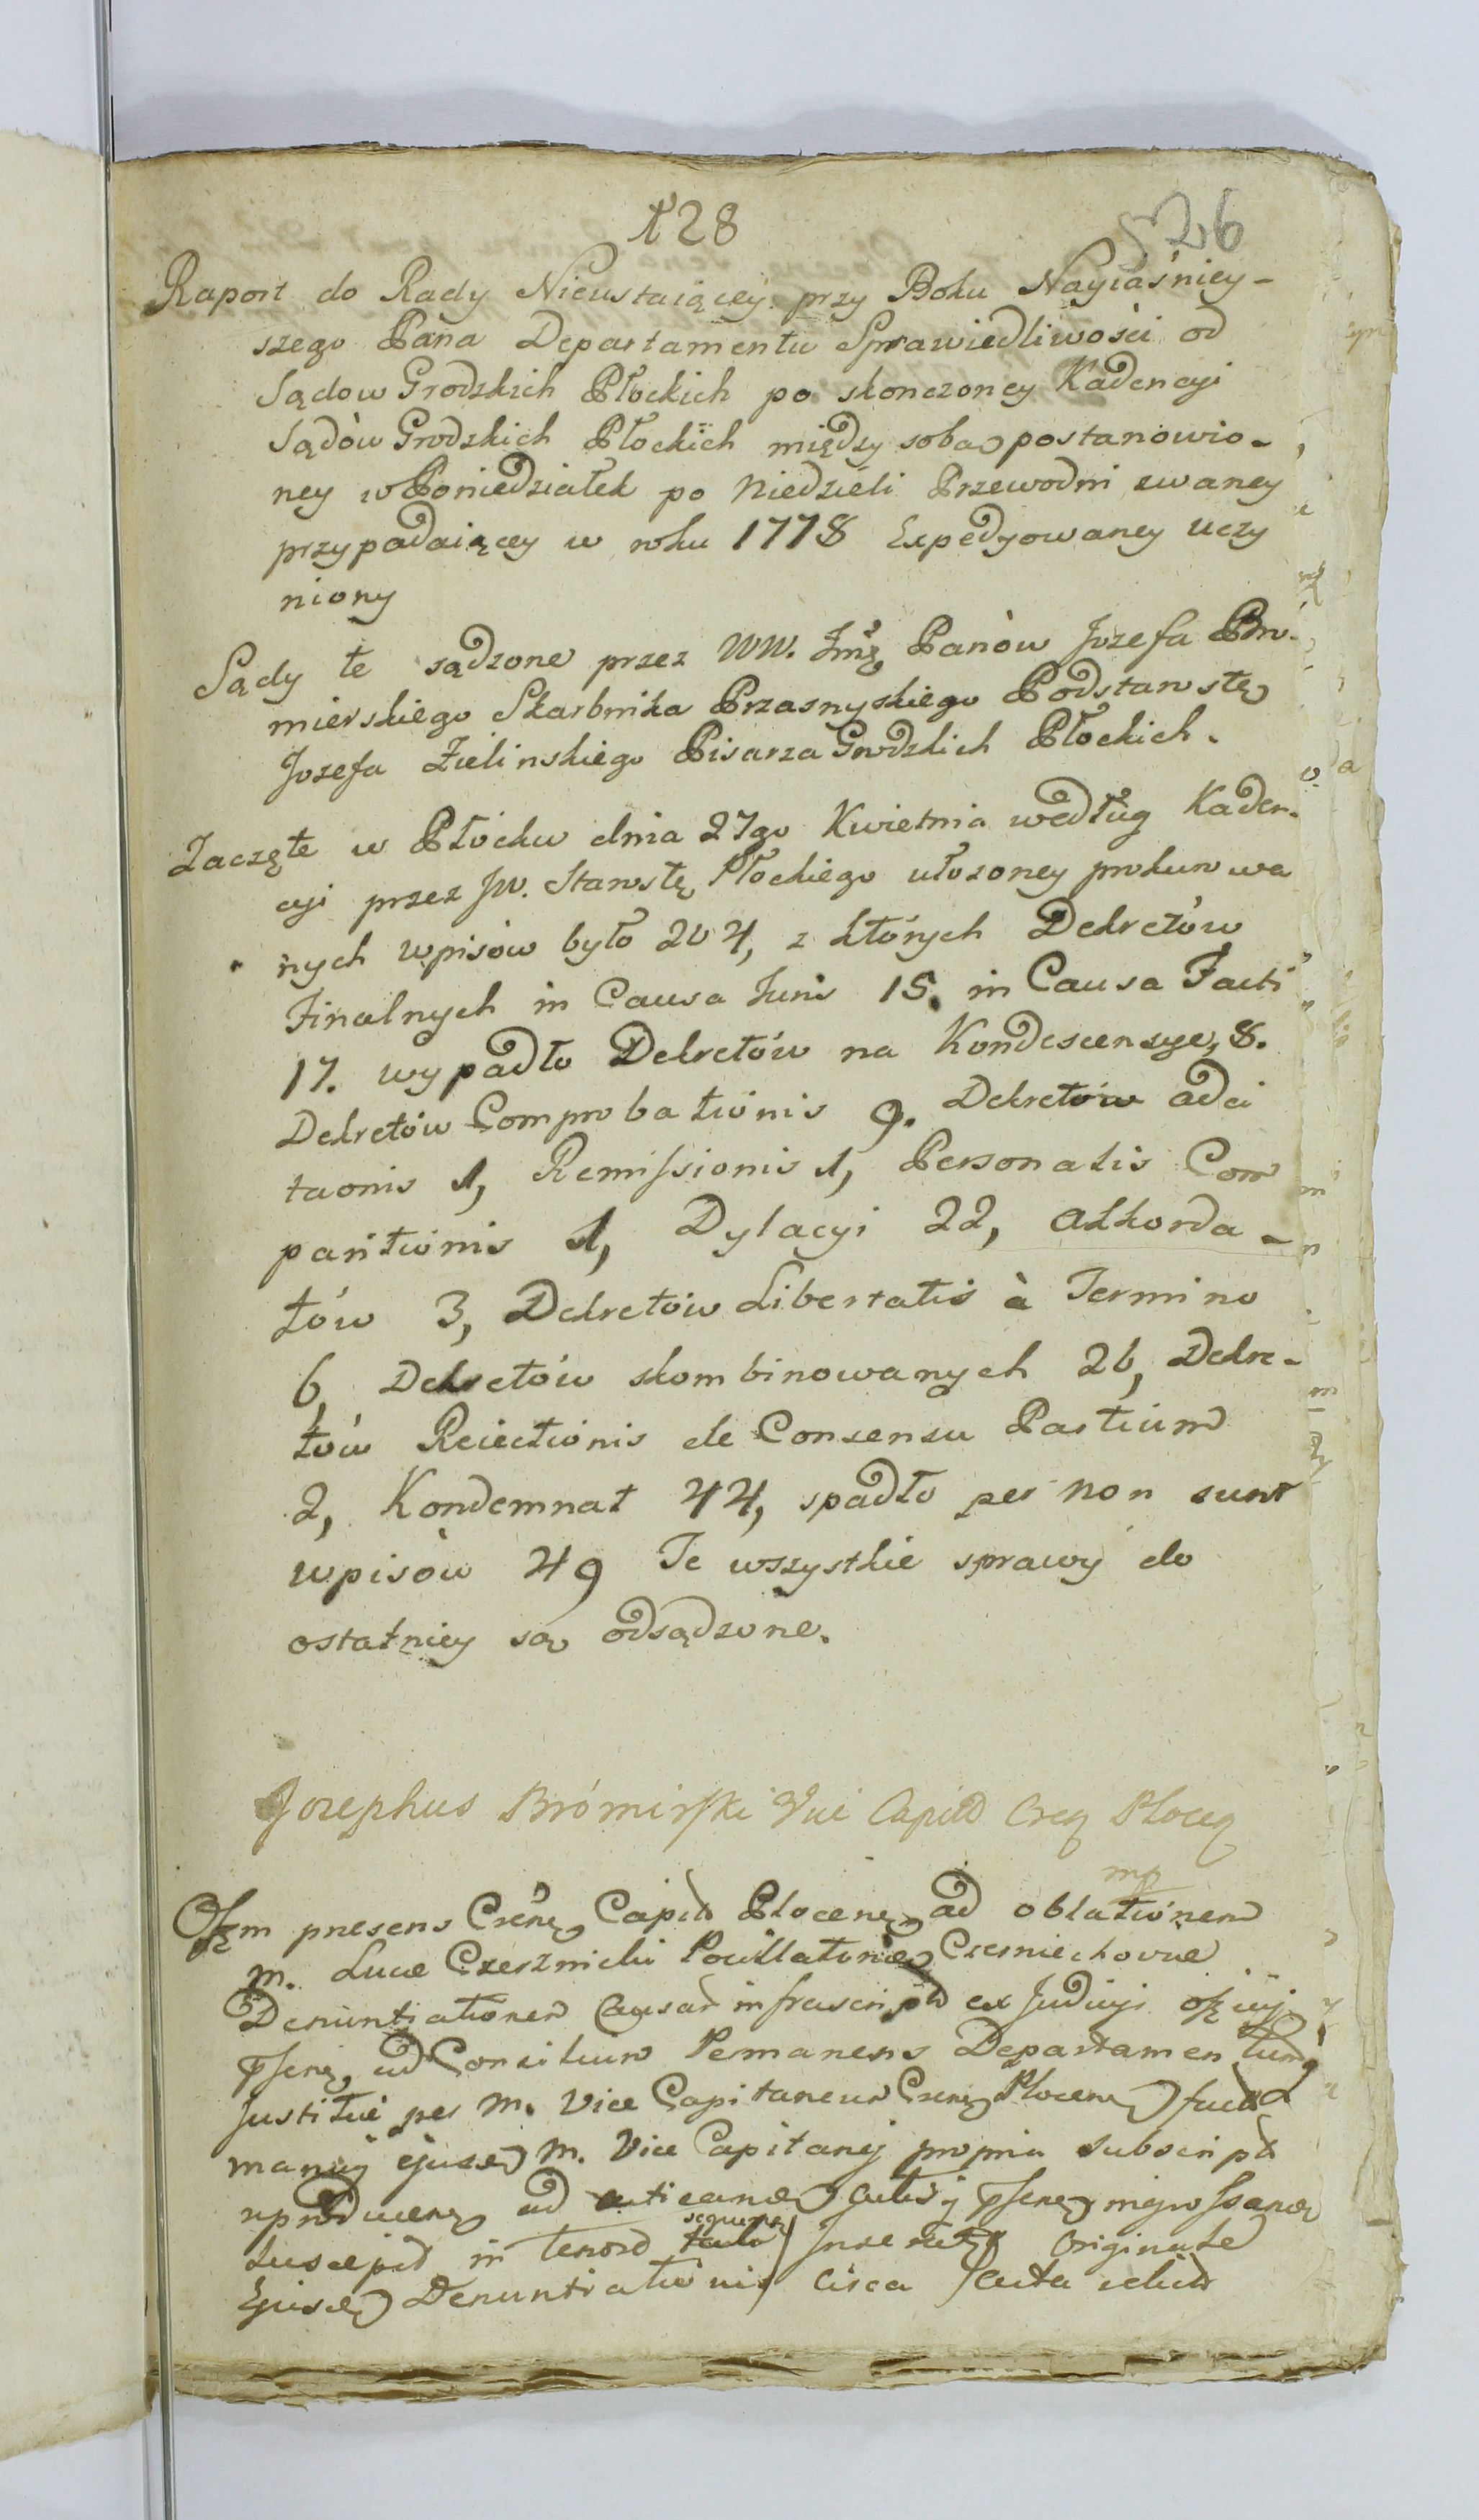 128
526
Raport do Rady Nieustaiącey przy Boku Nayiaśniey-
szego Pana Departamentu Sprawiedliwości od
Sądow Grodzkich Płockich po skonczoney Kadencyi
Sądów Grodzkich Płockich między sobą postanowio-
ney w Poniedziałek po Niedzieli Przewodni zwaney
przypadaiącey w roku 1778 Expedyowaney uczy
niony
Sądy te sądzone przez WW. Jmę Panów Jozefa Bro-
mierskiego Skarbnika Przasnyskiego Podstarostę
Jozefa Zielinskiego Pisarza Grodzkich Płockich.
Zaczęte w Płocku dnia 27go Kwietnia według Kaden-
cyi przez JW. Starostę Płockiego ułozoney prokurowa
nych wpisów było 204, z których Dekretów
Finalnych in Causa Juris 15. in Causa Facti
17. wypadło Dekretów na Kondescensye, 8.
Dekretów Comprobationis 9. Dekretów adci
taonis 1, Remissionis 1, Personalis Com
paritionis 1, Dylacyi 22, Akkorda-
tów 3, Dekretów Libertatis à Termino
6, Dekretów skombinowanych 26, Dekre-
tów Reiectionis de Consensu Partium
2, Kondemnat 44, spadło per non sunt
wpisów 49 Te wszystkie sprawy do
ostatniey są odsądzone.
Josephus Brómirski Vice Capit Crę Plocę
mp
Offm presens Csrę Capit Plocenę ad oblationem
M. Luce Czerznicki Czerniechoviae
Denuntiationem Causar infrascript ex Judicy
ad Consilium Permanens Departamentum
Justitiae per M. Vice Capitaneum Csrę Plocenę
manuq ejusd M. Vice Capitanej propria subscript
ad acticand
suscepit in tenore sequenę Originale
Ejusd Denuntiationis circa Acta